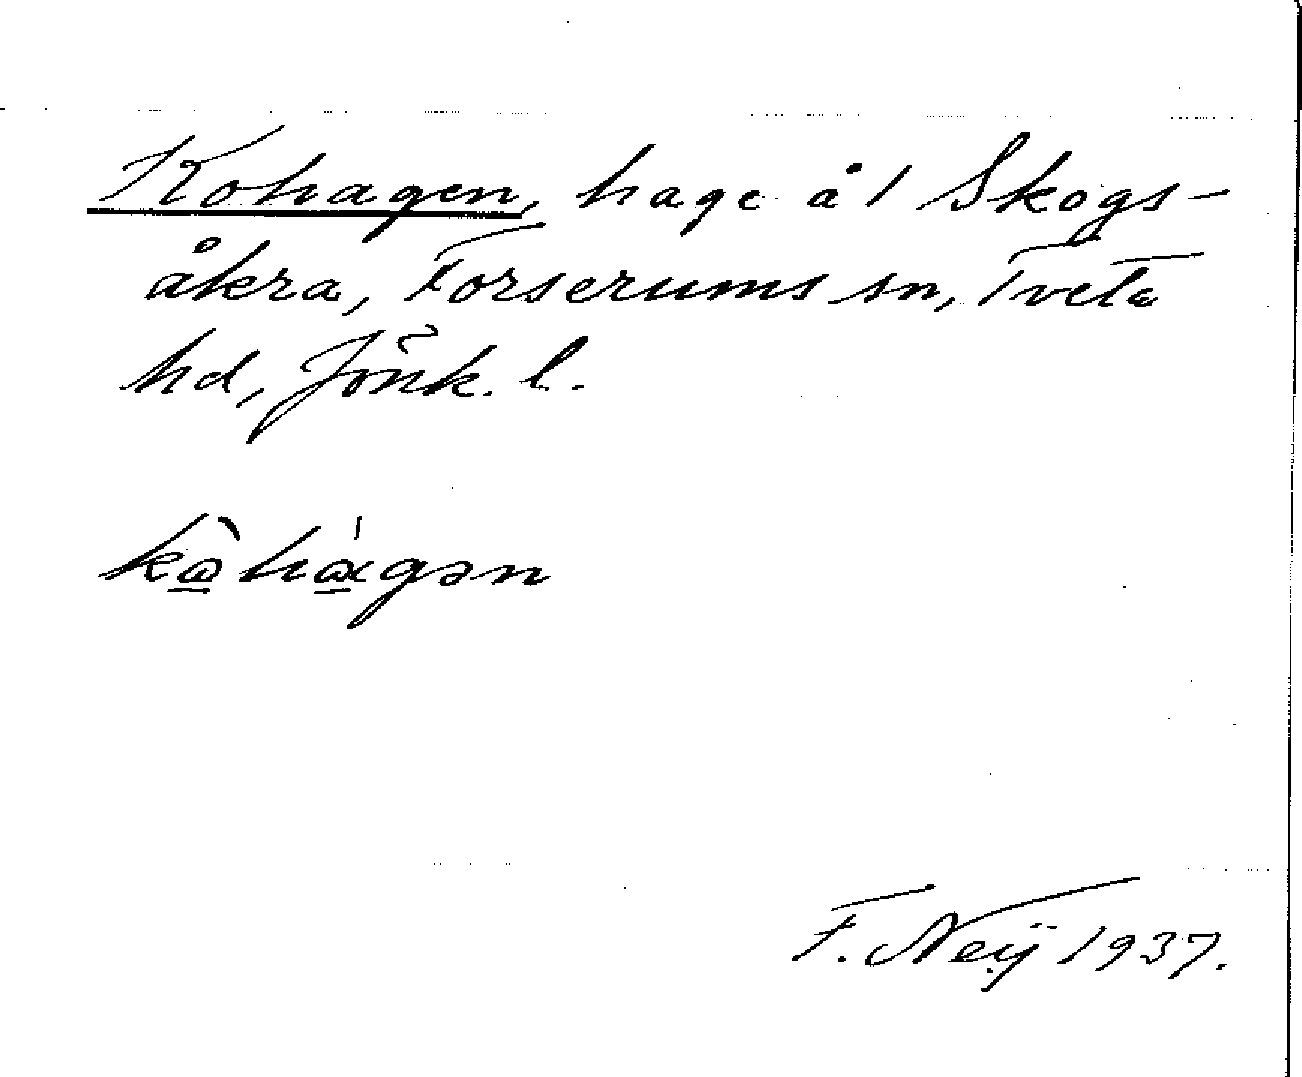 Kohagen, hage å 1 Skogs-
åkra, Forserums sn, Tveta
hd, Jönk. l.
kὼhώgən
F. Neÿ 1937.